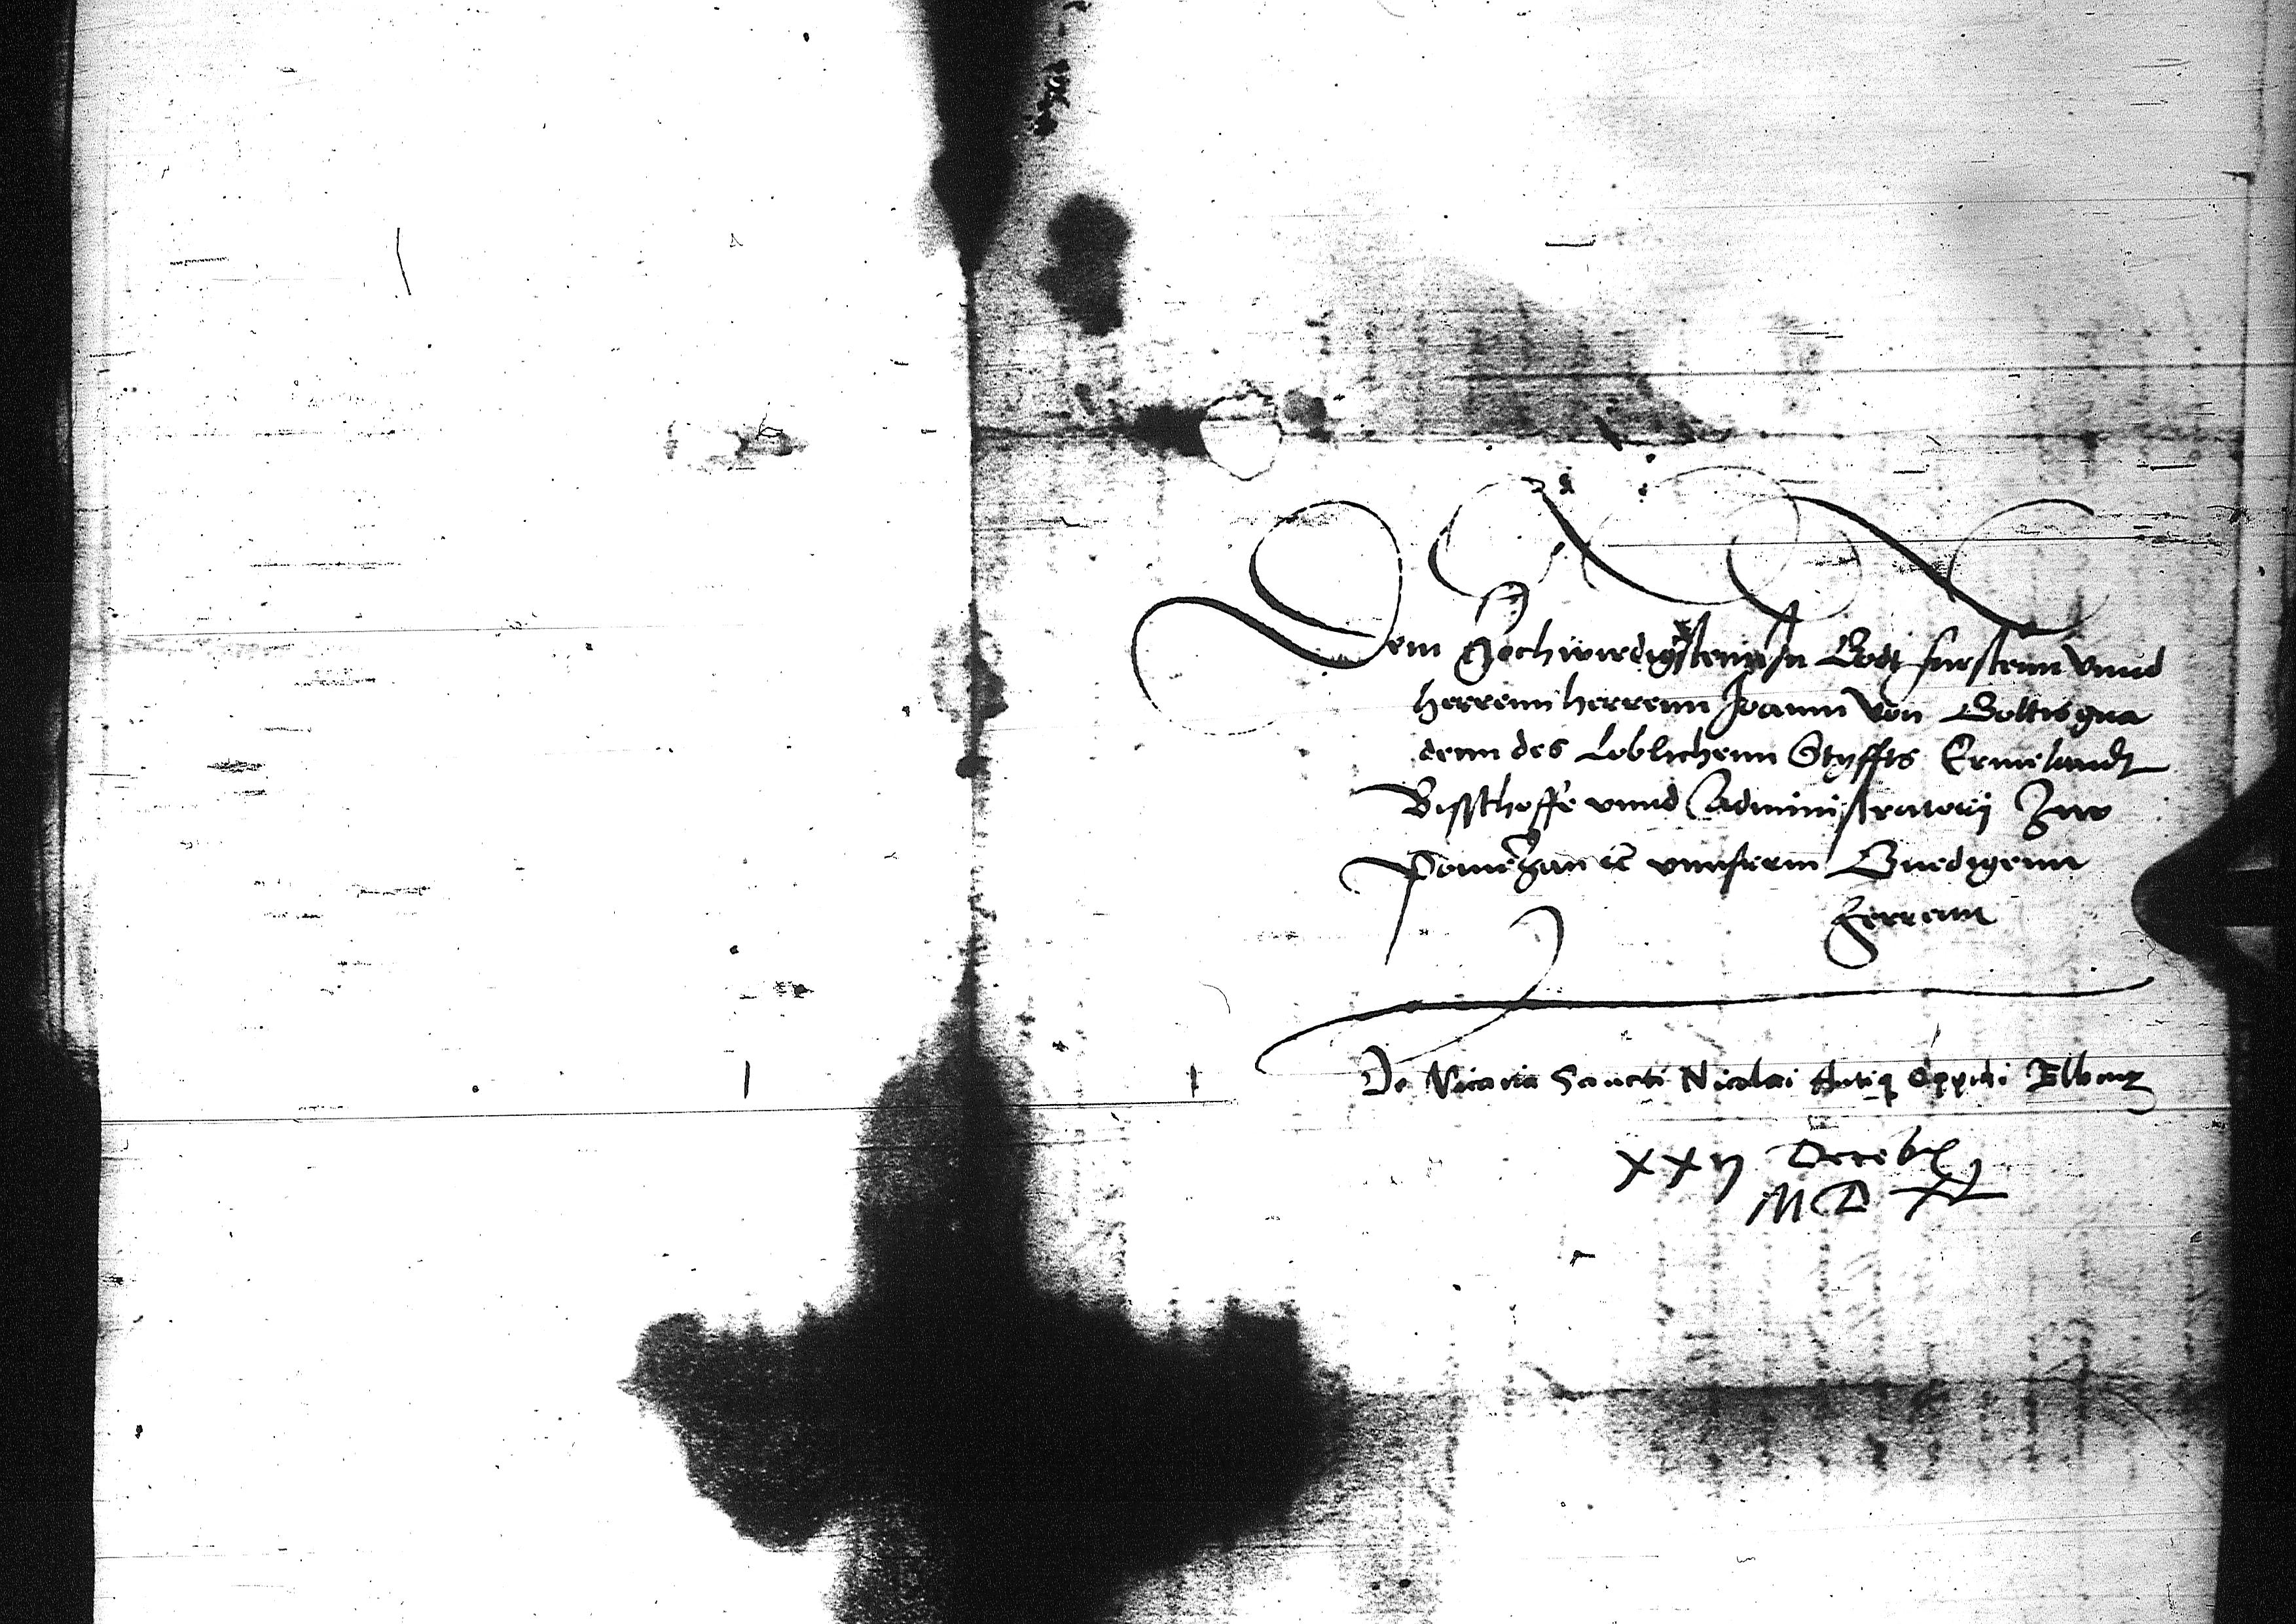 Dem Hochwirdigstenn jn Godt furstenn vnnd
herrenn herrenn Joanni von Gottis gna
denn des Loblichenn Styffts Ermelandt
Bisschoffe vnnd Administratorij Zuo
Pomezan etc vnnserm Gnedigenn
Herrenn
De Vicaria Sancti Nicolai Antiq Oppidi Elbing
xxij Decēb
MDXL